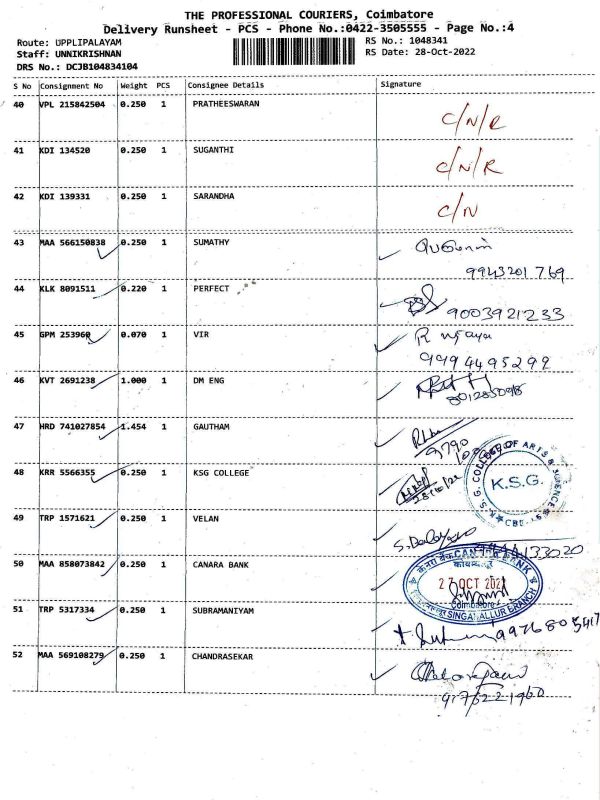 THE PROFESSIONAL COURIERS, Coimbatore
Delivery Runsheet - PCS - Phone No.:0422-3505555 - Page No.:4
Route: UPPLIPALAYAM
RS No.: 1048341
Staff: UNNIKRISHNAN
RS Date: 28-Oct-2022
DRS No.: DCJB104834104
S No Consignment No Weight PCS Consignee Details Signature
40 VPL 215842504 0.250 1 PRATHEESWARAN C/N/R
41 KDI 134520 0.250 1 SUGANTHI C/N/R
42 KDI 139331 0.250 1 SARANDHA C/N
43 MAA 566150838 0.250 1 SUMATHY
9943201769
44 KLK 8091511 0.220 1 PERFECT
9003921233
45 GPM 253960 0.070 1 VIR
9994495299
46 KVT 2691238 1.000 1 DM ENG
47 HRD 741027854 1.454 1 GAUTHAM
9790
48 KRR 5566355 0.250 1 KSG COLLEGE
28/10/22
K.S.G.
49 TRP 1571621 0.250 1 VELAN
133020
50 MAA 858073842 0.250 1 CANARA BANK
CANARA BANK
27 OCT 2022
Coimbatore
SINGANALLUR BRANCH
51 TRP 5317334 0.250 1 SUBRAMANIYAM
9976805417
52 MAA 569108279 0.250 1 CHANDRASEKAR